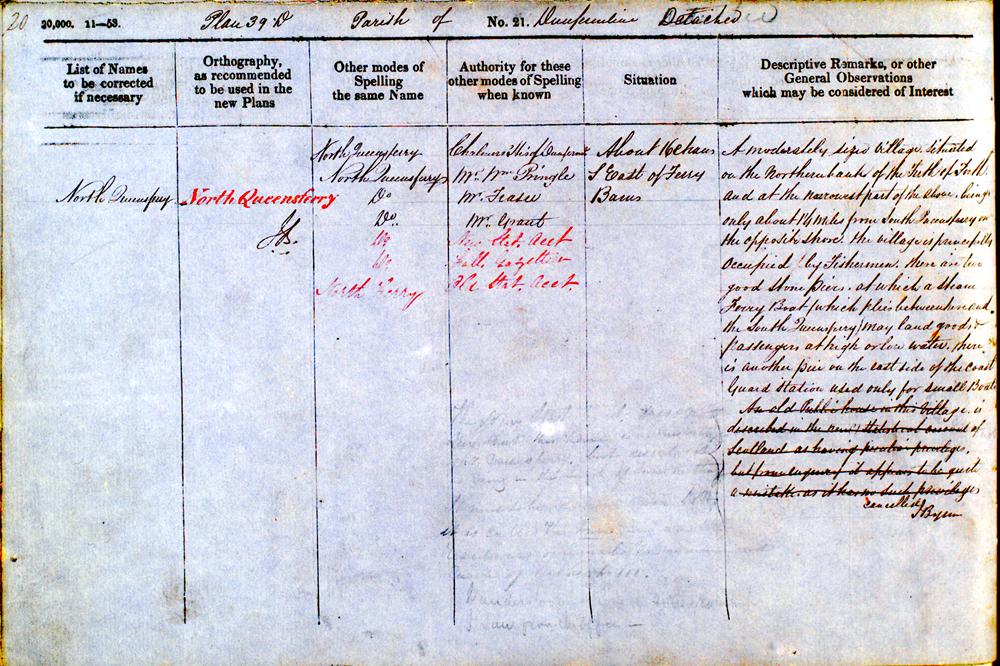 20
20,000. 11—53.
Plan 39 D Parish of No. 21. Dunfermline Detached
List of Names
to be corrected
if necessary
Orthography,
as recommended
to be used in the
new Plans
Other modes of
Spelling
the same Name
Authority for these
other modes of Spelling
when known
Situation
Descriptive Remarks, or other
General Observations
which may be considered of Interest
North Queensferry
North Queensferry
JB.
North Queensferry
North Queensferry
Do
Do
Do
Do
North Ferry
Chalmers' Hist. of Dunfermline
Mr. Wm Pringle
Mr. Fraser
Mr. Grant
New Stat. Acct
Full. Gazetteer
Old Stat. Acct.
About 16 chains
S East of Ferry
Barns
A moderately sized Village. Situated
on the Northern bank of the Firth of Forth
and at the narrowest part of the shore. being
only about 1¼ Miles from South Queensferry on
the opposite shore. the village is principally
occupied by Fishermen. there are two
good stone piers. at which a steam
Ferry Boat (which plies between here and
the South Queensferry) may land goods &
passengers at high or low water. there
is another pier on the east side of the coast
Guard Station used only for small Boats
An old Public house in this Village. is
described in the new Statistical account of
Scotland as having peculiar privileges,
but from enquiry it appears to be quite
a mistake. as it has no such privileges
cancelled
J Byrn